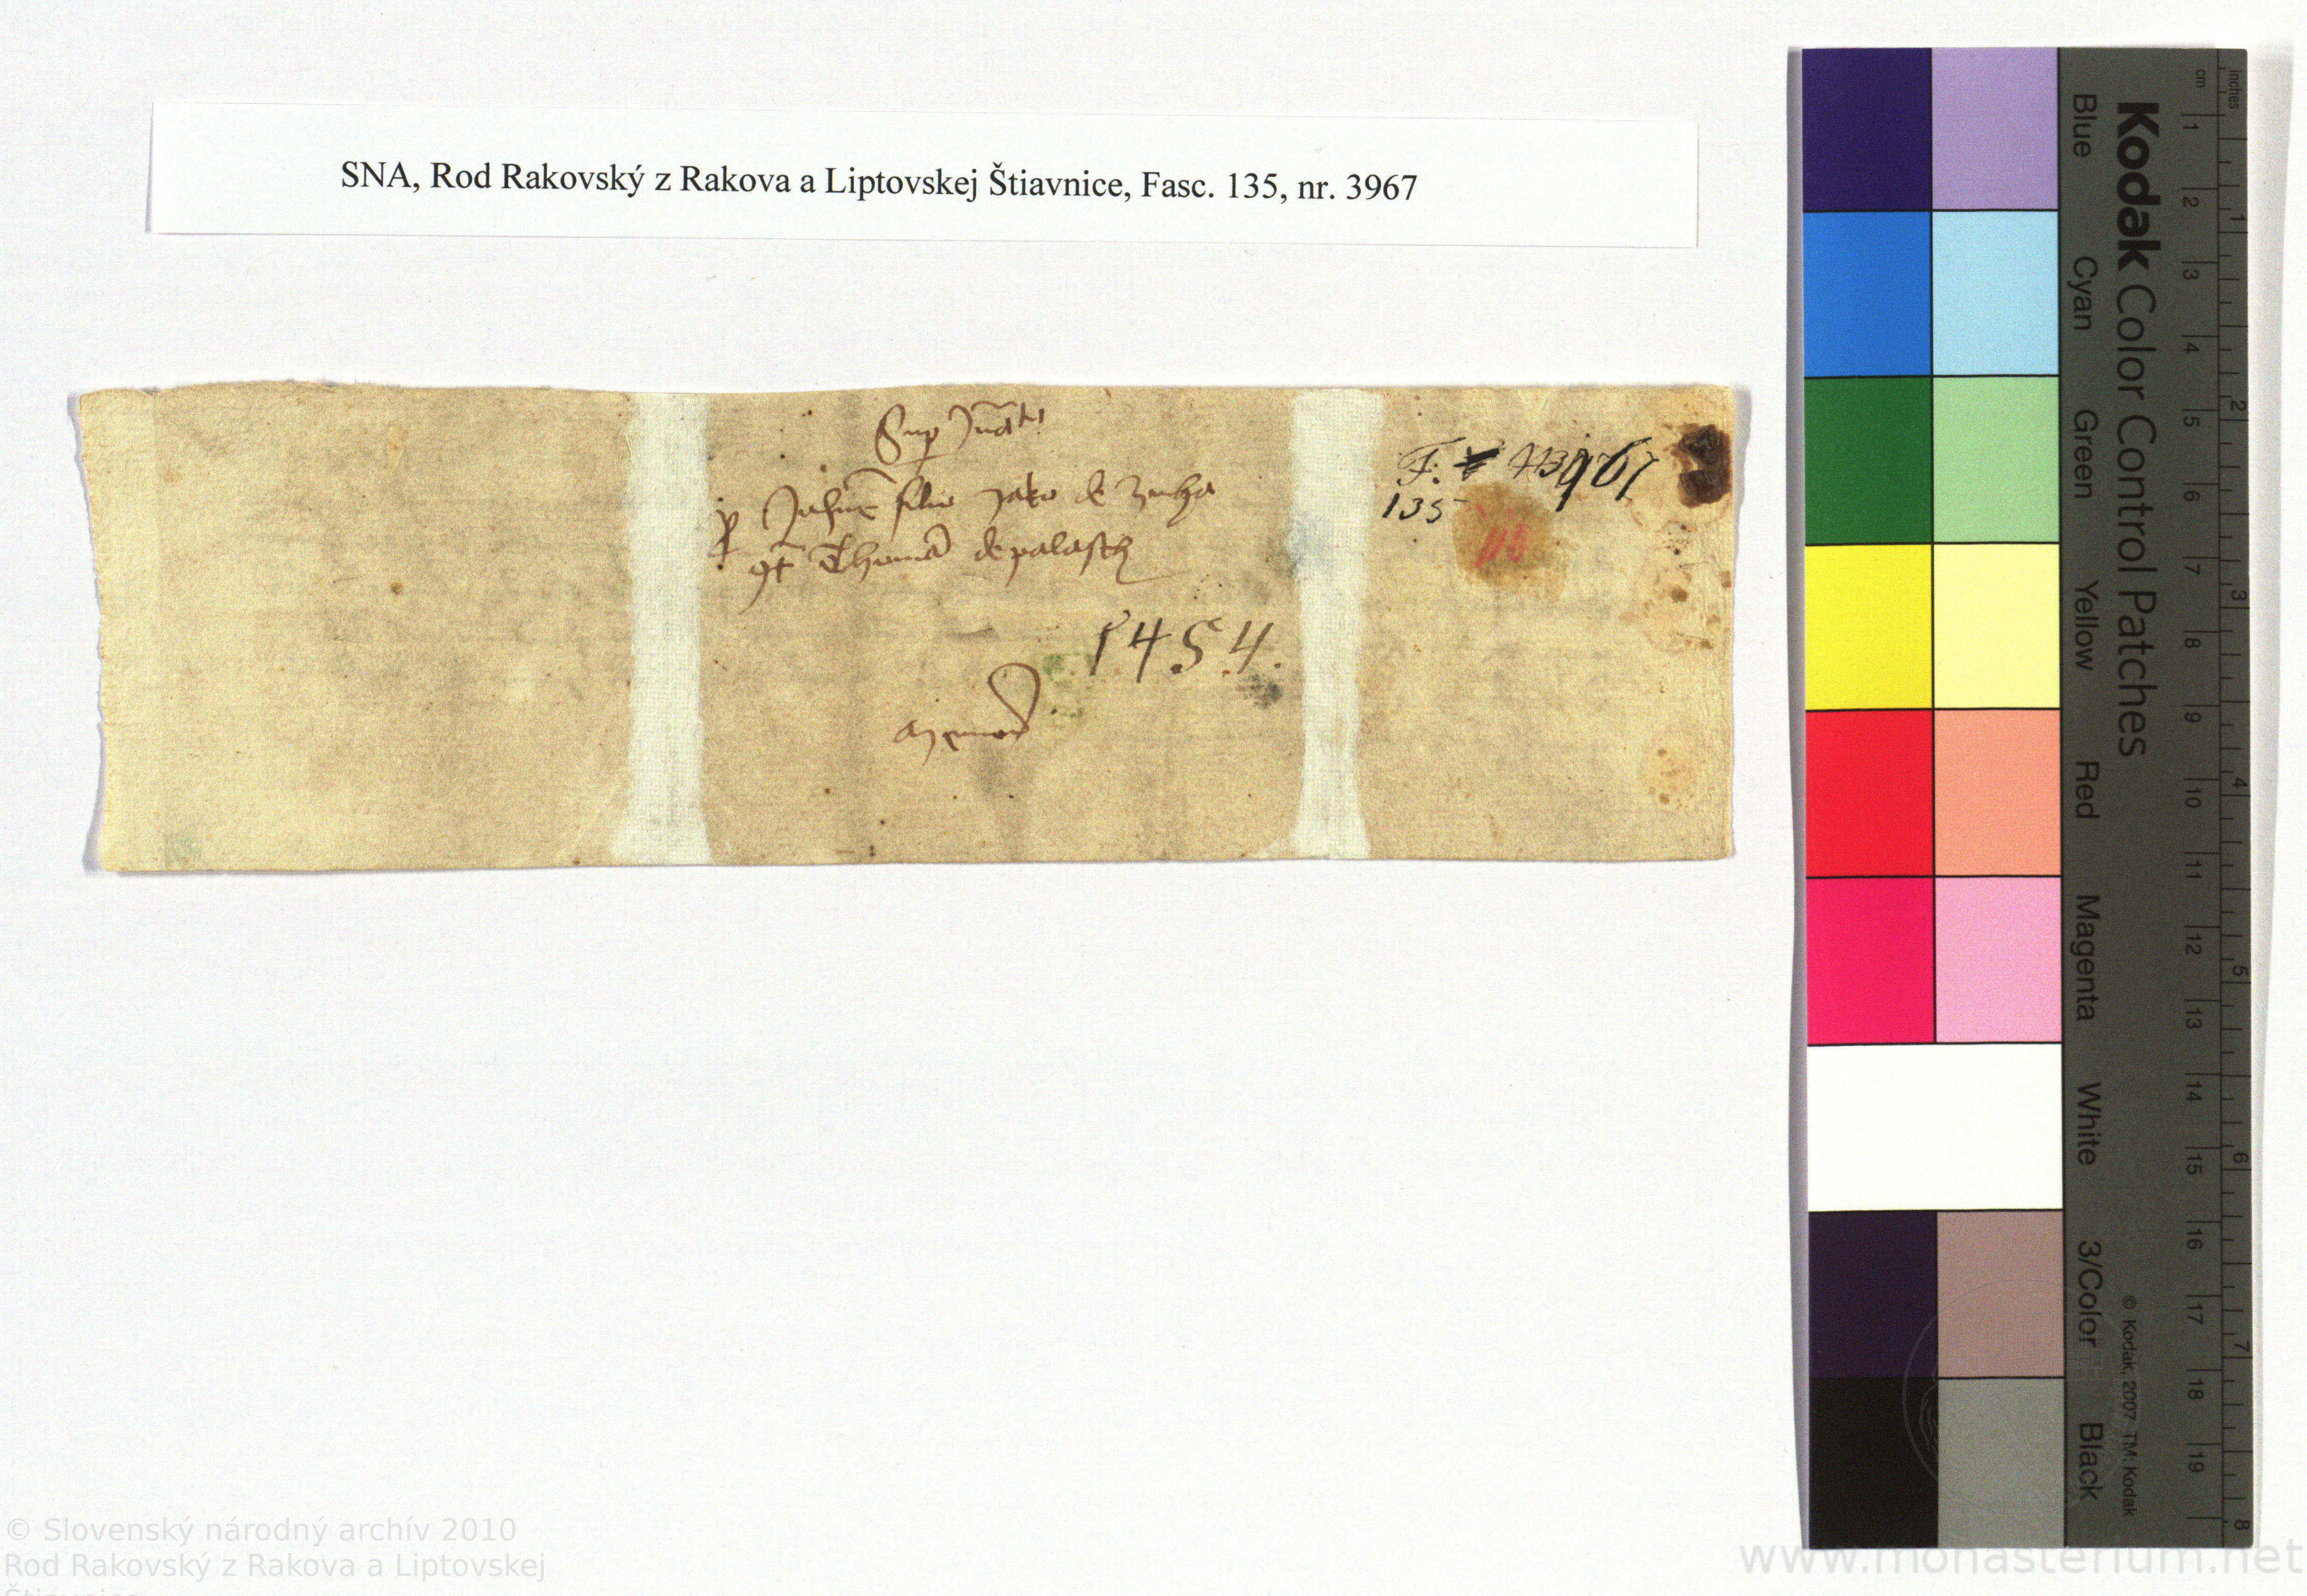 SNA, Rod Rakovský z Rakova a Liptovskej Štiavnice, Fasc. 135, nr. 3967
Sup
filio Jako de
Thomā de palasth
1454.
F.
135
Kodak Color Control Patches
Blue Cyan Green Yellow Red Magenta White 3/Color Black
© Kodak, 2007 TM: Kodak
cm 1 2 3 4 5 6 7 8 9 10 11 12 13 14 15 16 17 18 19
inches 1 2 3 4 5 6 7 8
© Slovenský národný archív 2010
Rod Rakovský z Rakova a Liptovskej
www.monasterium.net